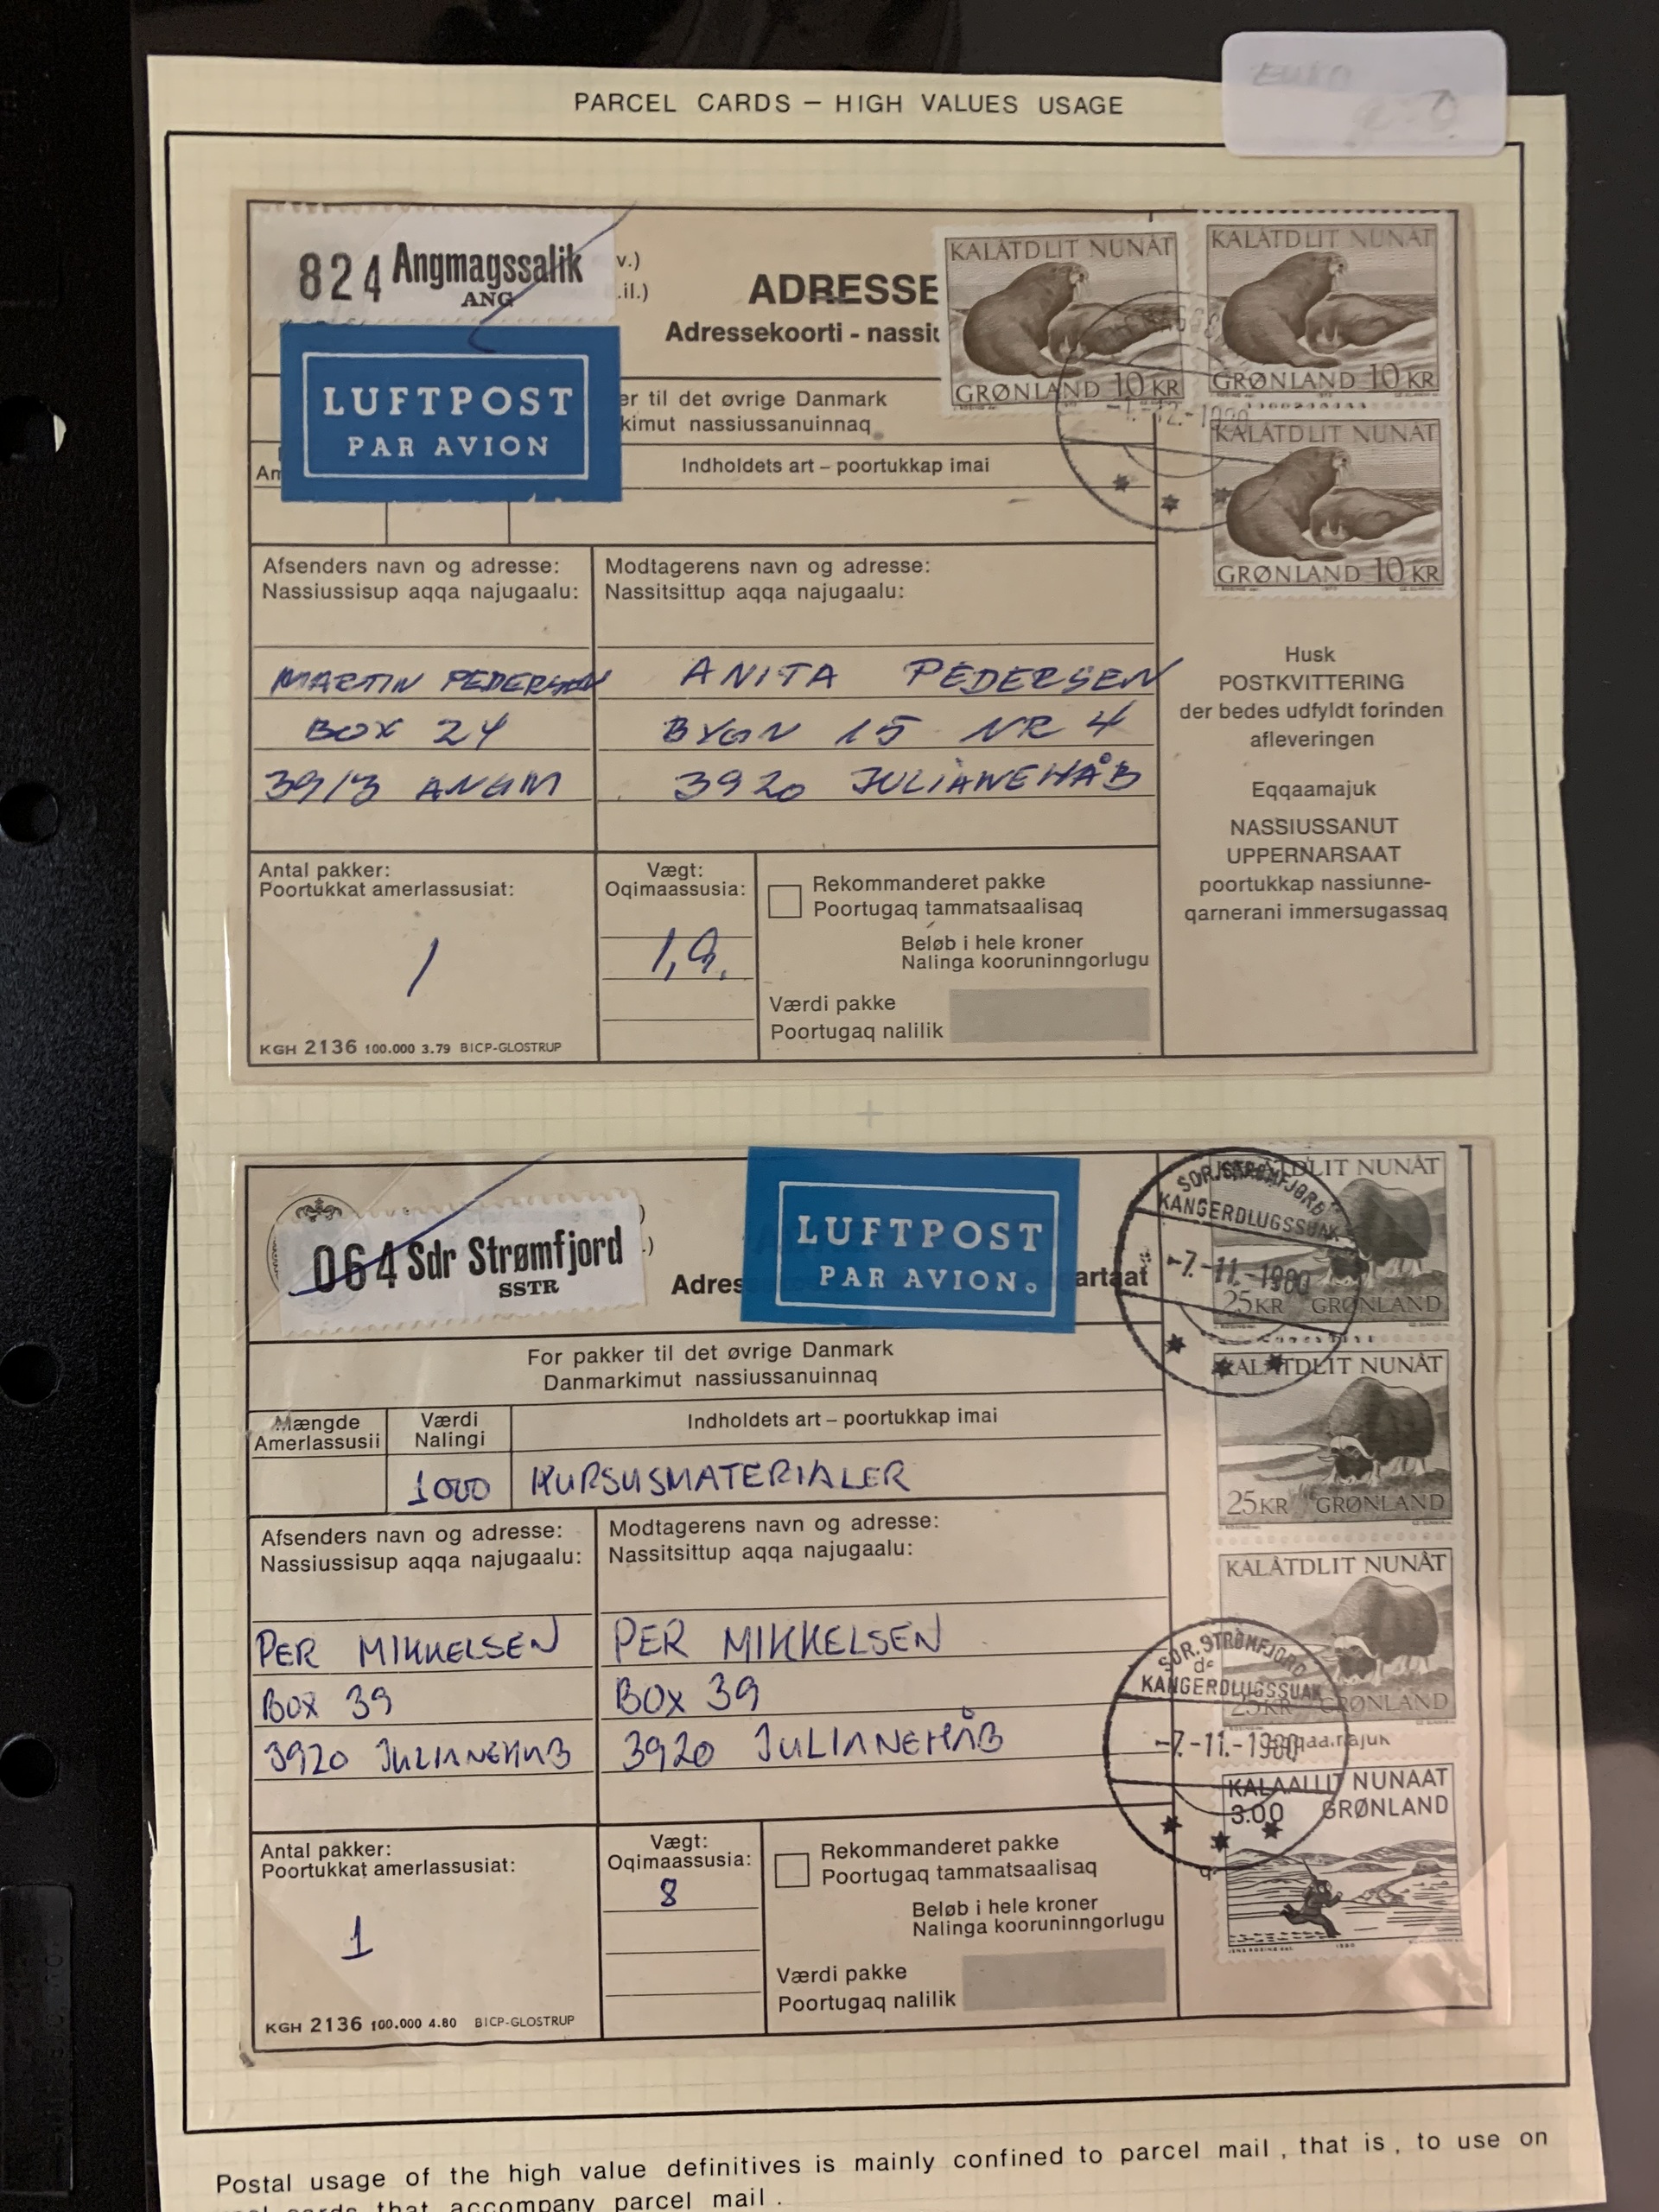 PARCEL CARDS — HIGH VALUES USAGE
824 Angmagssalik
ANG
v.)
il.)
ADRESSE
Adressekoorti - nassiu
LUFTPOST
PAR AVION
er til det øvrige Danmark
kimut nassiussanuinnaq
Am
Indholdets art – poortukkap imai
KALÅTDLIT NUNÅT
GRØNLAND 10 KR
KALÅTDLIT NUNÅT
GRØNLAND 10 KR
KALÅTDLIT NUNÅT
GRØNLAND 10 KR
Afsenders navn og adresse:
Nassiussisup aqqa najugaalu:
Modtagerens navn og adresse:
Nassitsittup aqqa najugaalu:
MARTIN PEDERSEN
BOX 24
3913 ANGM
ANITA PEDERSEN
BYGN 15 NR 4
3920 JULIANEHÅB
Husk
POSTKVITTERING
der bedes udfyldt forinden
afleveringen
Eqqaamajuk
NASSIUSSANUT
UPPERNARSAAT
poortukkap nassiunne-
qarnerani immersugassaq
Antal pakker:
Poortukkat amerlassusiat:
1
Vægt:
Oqimaassusia:
1,9.
Rekommanderet pakke
Poortugaq tammatsaalisaq
Beløb i hele kroner
Nalinga kooruninngorlugu
Værdi pakke
Poortugaq nalilik
KGH 2136 100.000 3.79 BICP-GLOSTRUP
064 Sdr Strømfjord
SSTR
)
.)
Adres
artaat
LUFTPOST
PAR AVION.
For pakker til det øvrige Danmark
Danmarkimut nassiussanuinnaq
Mængde
Amerlassusii
Værdi
Nalingi
Indholdets art – poortukkap imai
1000
KURSUSMATERIALER
SDR. STRØMFJORD
KANGERDLUGSSUAK
-7.-11.-1980
DLIT NUNÅT
25 KR GRØNLAND
KALÅTDLIT NUNÅT
25 KR GRØNLAND
KALÅTDLIT NUNÅT
25 KR GRØNLAND
SDR. STRØMFJORD
KANGERDLUGSSUAK
-7.-11.-1980
KALAALLIT NUNAAT
3.00 GRØNLAND
Afsenders navn og adresse:
Nassiussisup aqqa najugaalu:
Modtagerens navn og adresse:
Nassitsittup aqqa najugaalu:
PER MIKKELSEN
BOX 39
3920 JULIANEHÅB
PER MIKKELSEN
BOX 39
3920 JULIANEHÅB
Antal pakker:
Poortukkat amerlassusiat:
1
Vægt:
Oqimaassusia:
8
Rekommanderet pakke
Poortugaq tammatsaalisaq
Beløb i hele kroner
Nalinga kooruninngorlugu
Værdi pakke
Poortugaq nalilik
KGH 2136 100.000 4.80 BICP-GLOSTRUP
Postal usage of the high value definitives is mainly confined to parcel mail, that is, to use on
cards that accompany parcel mail.